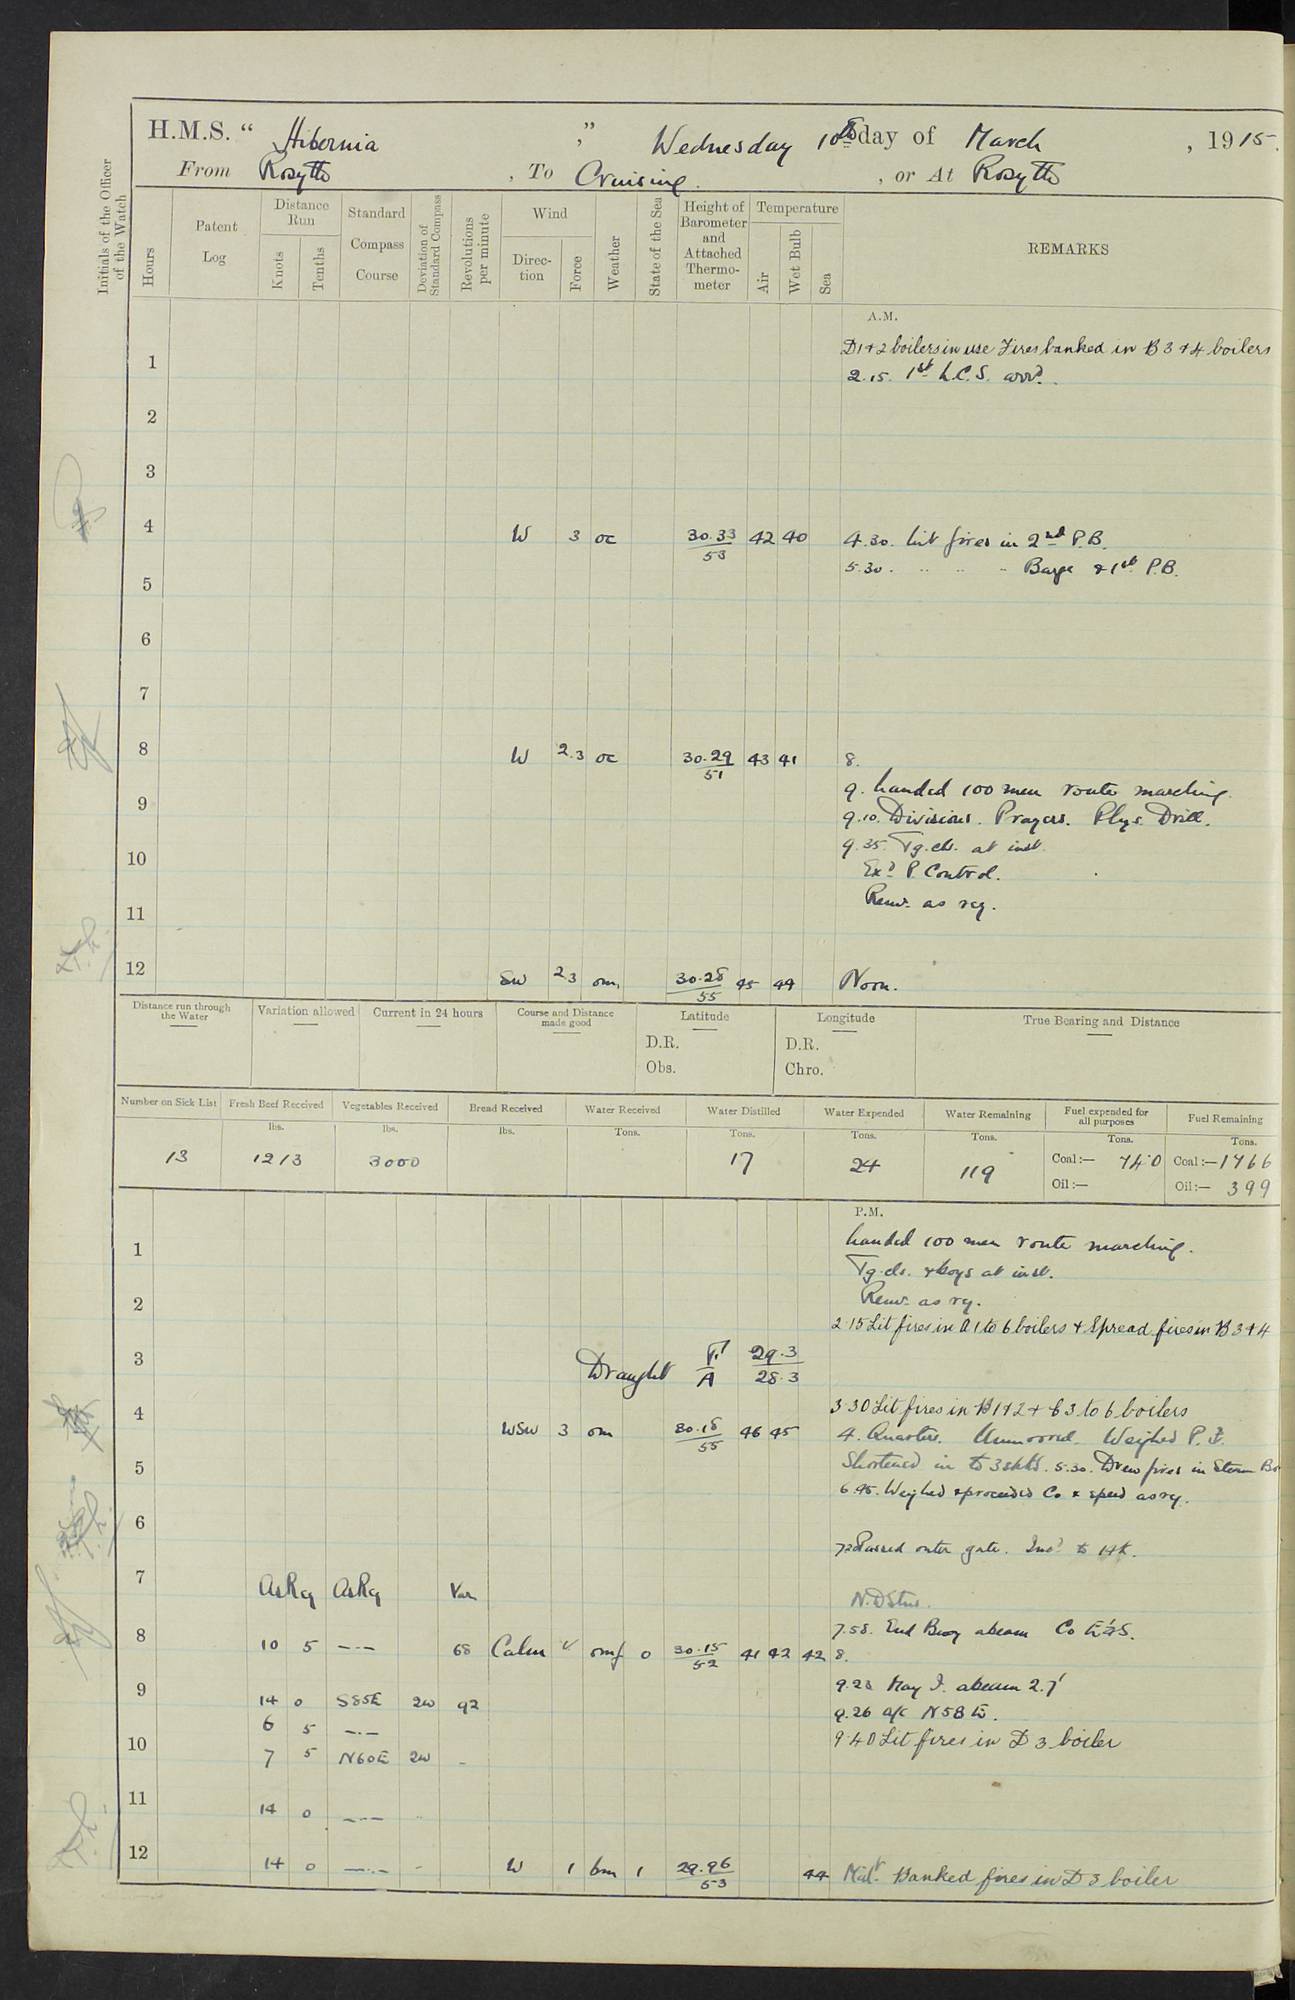 H.M.S. “ Hibernia ” , Wednesday 10th day of March , 1915.
From Rosyth , To Cruising. , or At Rosyth
Initials of the Officer of the Watch
Hours
Patent Log
Distance Run
Knots
Tenths
Standard Compass Course
Deviation of Standard Compass
Revolutions per minute
Wind
Direc-tion
Force
Weather
State of the Sea
Height of Barometer and Attached Thermo-meter
Temperature
Air
Wet Bulb
Sea
REMARKS
A.M.
D1+2 boilers in use Fires banked in B 3 + 4 boilers
1
2.15. 1st L.C.S. arrd.
2
3
4 W 3 oc 30.33/53 42 40 4.30. Lit fires in 2nd P.B.
5.30. .. .. .. Barge & 1st P.B.
5
6
7
8 W 2.3 oc 30.29/51 43 41 8.
9. Landed 100 men route marching.
9 9.10. Divisions. Prayers. Phys. Drill.
9.35. Tg. cls. at inst.
10 Exd P. Control.
Remr. as req.
11
12 SW 2.3 om 30.28/55 45 44 Noon.
Distance run through the Water
Variation allowed
Current in 24 hours
Course and Distance made good
Latitude
D.R.
Obs.
Longitude
D.R.
Chro.
True Bearing and Distance
Number on Sick List
Fresh Beef Received
Vegetables Received
Bread Received
Water Received
Water Distilled
Water Expended
Water Remaining
Fuel expended for all purposes
Fuel Remaining
lbs. lbs. lbs. Tons. Tons. Tons. Tons. Tons. Tons.
13 1213 3000 17 24 119 Coal:— 74.0 Coal:— 1766
Oil:— Oil:— 399
P.M.
1 Landed 100 men route marching.
Tg. cls. & boys at inst.
2 Remr. as rq.
2.15 Lit fires in A 1 to 6 boilers & Spread fires in B 3 + 4
3 Draught F 29.3
A 28.3
3.30 Lit fires in B 1+2 + C 3 to 6 boilers
4 WSW 3 om 30.18/55 46 45 4. Quarters. Unmoored. Weighed P.
5 Shortened in to 3 shks. 5.30. Drew fires in Steam
6.45. Weighed & proceeded Co & speed as rq.
6
Passed outer gate. Incd to 14k.
7 As Rq As Rq Var
N.D Stns.
7.58. End Buoy abeam Co
8 10 5 68 Calm omf 0 30.15/52 41 42 42 8.
9.23 May I. abeam 2.7'
9 14 0 S85E 2W 92 9.26 a/c N58E.
6 5
9.40 Lit fires in D 3 boiler
10 7 5 N60E 2W
11 14 0
12 14 0 W 1 bm 1 29.96/53 44 Midt. Banked fires in D 3 boiler